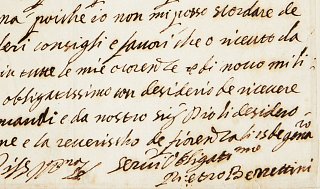 na poiche io non mi posso scordare de
consigli e favori che o riceuto da
in tutte le mie di nouo mi ti
obligatissimo con desiderio de riceuere
mandi e da nostro sig.r Dio li desidero
ne e la reuerischo de fiorenza li 15 de genaro
Ser.re Obligatt.mo
Pietro Berrettini